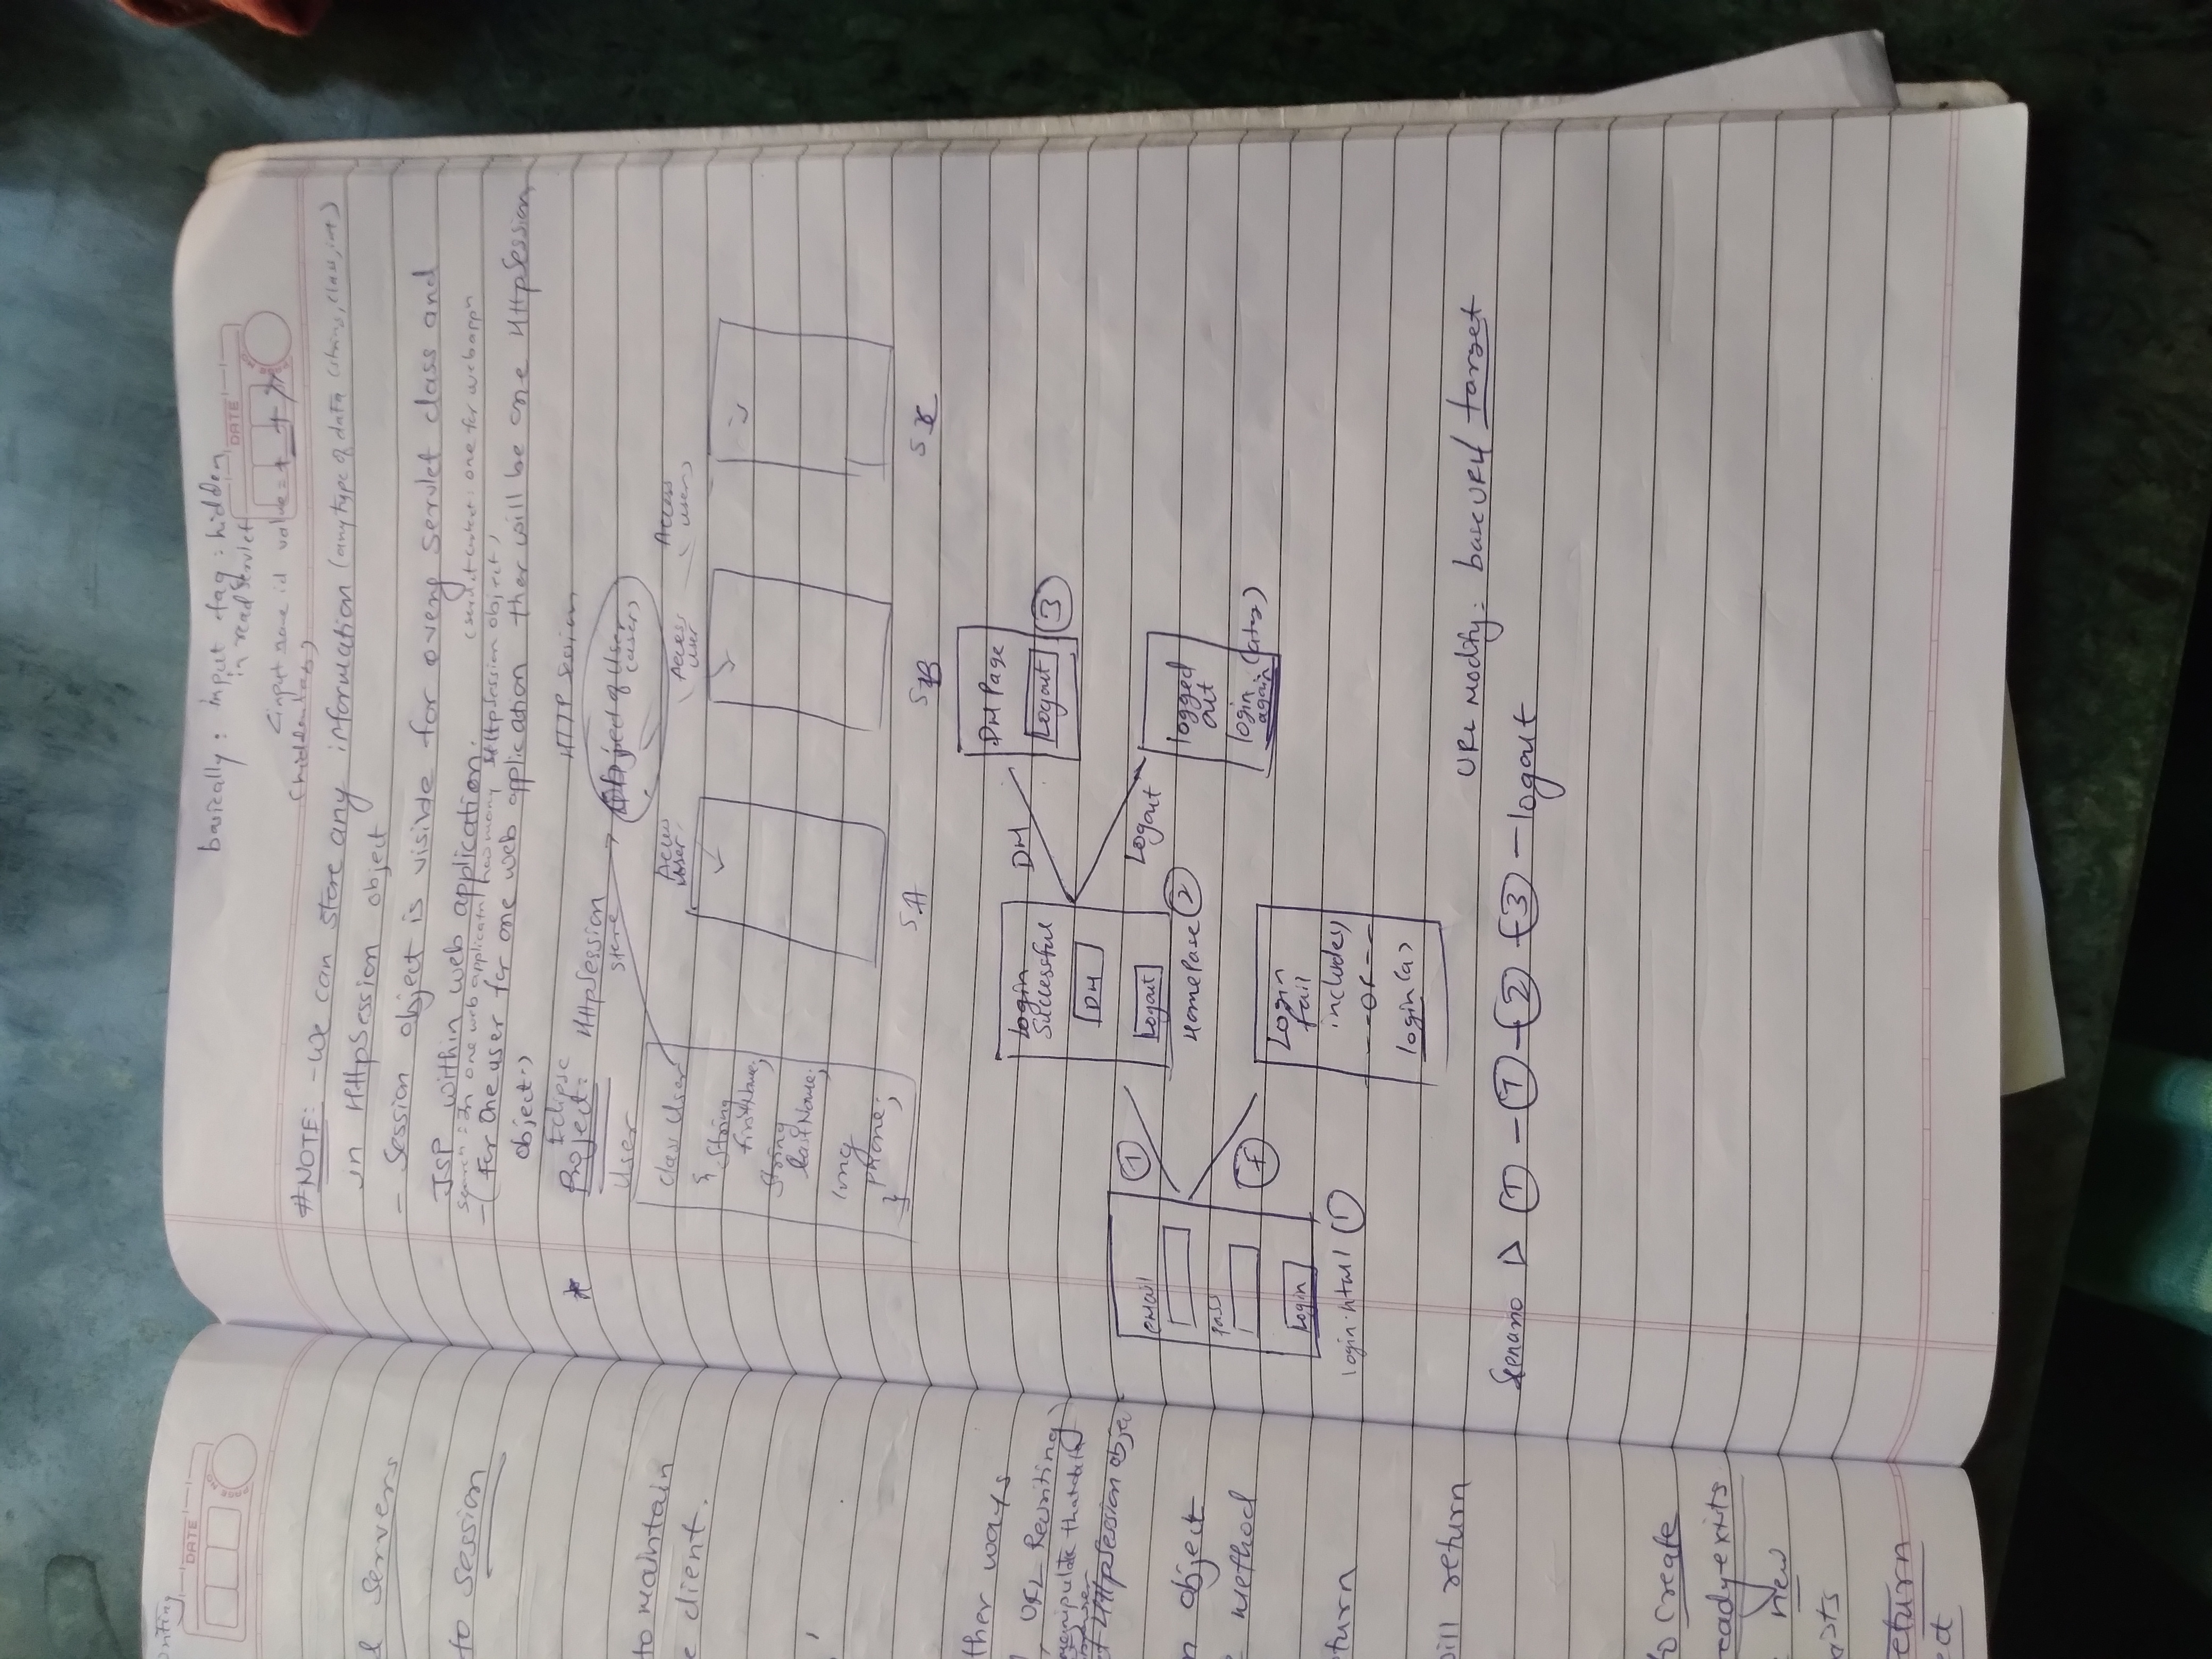 DATE
PAGE NO
& servers
to session
to maintain
e client.
ther ways
URL Rewriting
manipulate that data
browser
HttpSession objec
n object
method
turn
will return
to create
ready exits
new
ists
return
ect
basically : input tag : hidden
in readServlet
DATE
<input name id value=" + _ + "/>
#NOTE: - We can store any information (any type of data (string, class, int)
in HttpSession object
- Session object is visible for every servlet class and
JSP within web application.
(servletContext : one for webappn
search : In one web applicatn how many HttpSession object)
- (For one user for one web application ther will be one HttpSession
object.)
Eclipse
* Project: HttpSession
HTTP Session
store
Object of User
(user)
User
class User
{ String
firstName;
String
lastName;
long
phone;
}
Access
user
Access
user
Access
user)
SA
SB
login
Successful
DM
Logout
HomePage 2
DM
DM Page
Logout
3
Logout
logged
out
login
again
email
pass
Login
login.html 1
T
F
Login
fail
include)
--or--
login(a)
URL Modify: baseURL/ target
Scenario 1 - T - 2 - 3 - logout